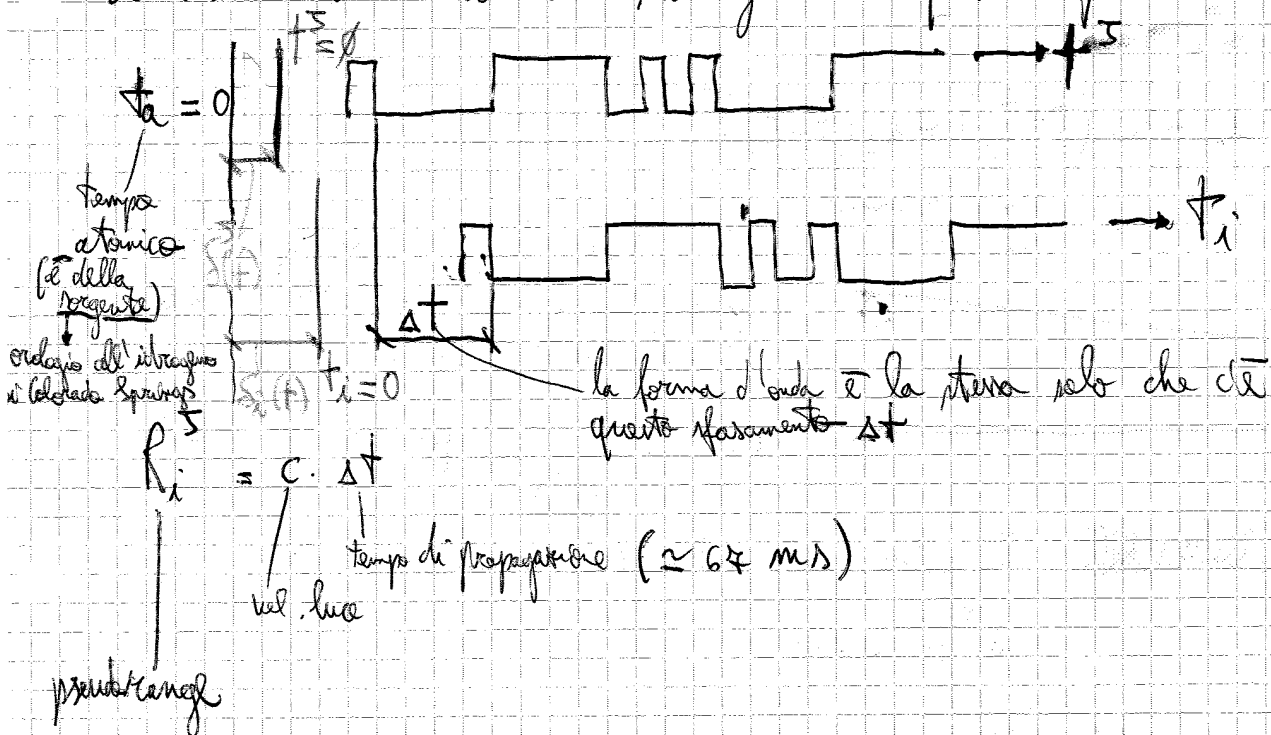 t^s = ∅
t^s
t_a = 0
tempo
atomico
(è della
sorgente)
orologio all'idrogeno
di Colorado Springs
δ_i(t)
t_i = 0
Δt
t_i
la forma d'onda è la stessa solo che c'è
questo sfasamento Δt
R_i^s = c · Δt
tempo di propagazione (≃ 67 ms)
vel. luce
pseudorange